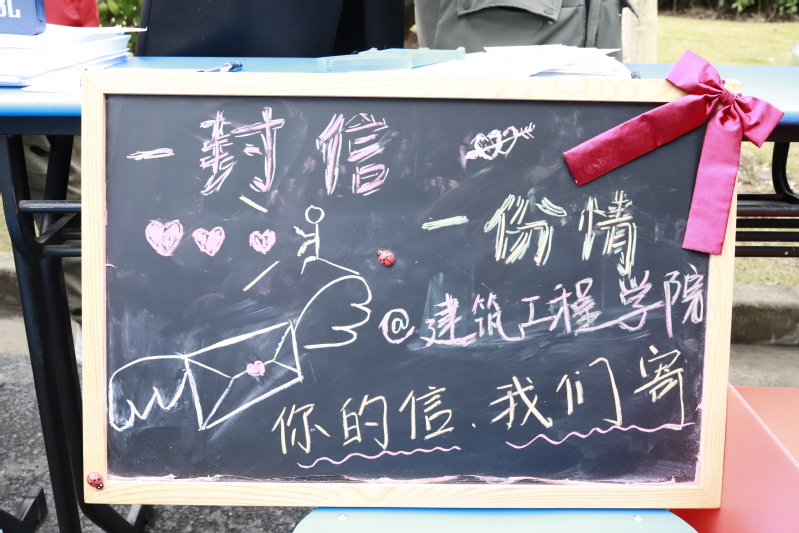 一封信
一份情
@建筑工程学院
你的信、我们寄